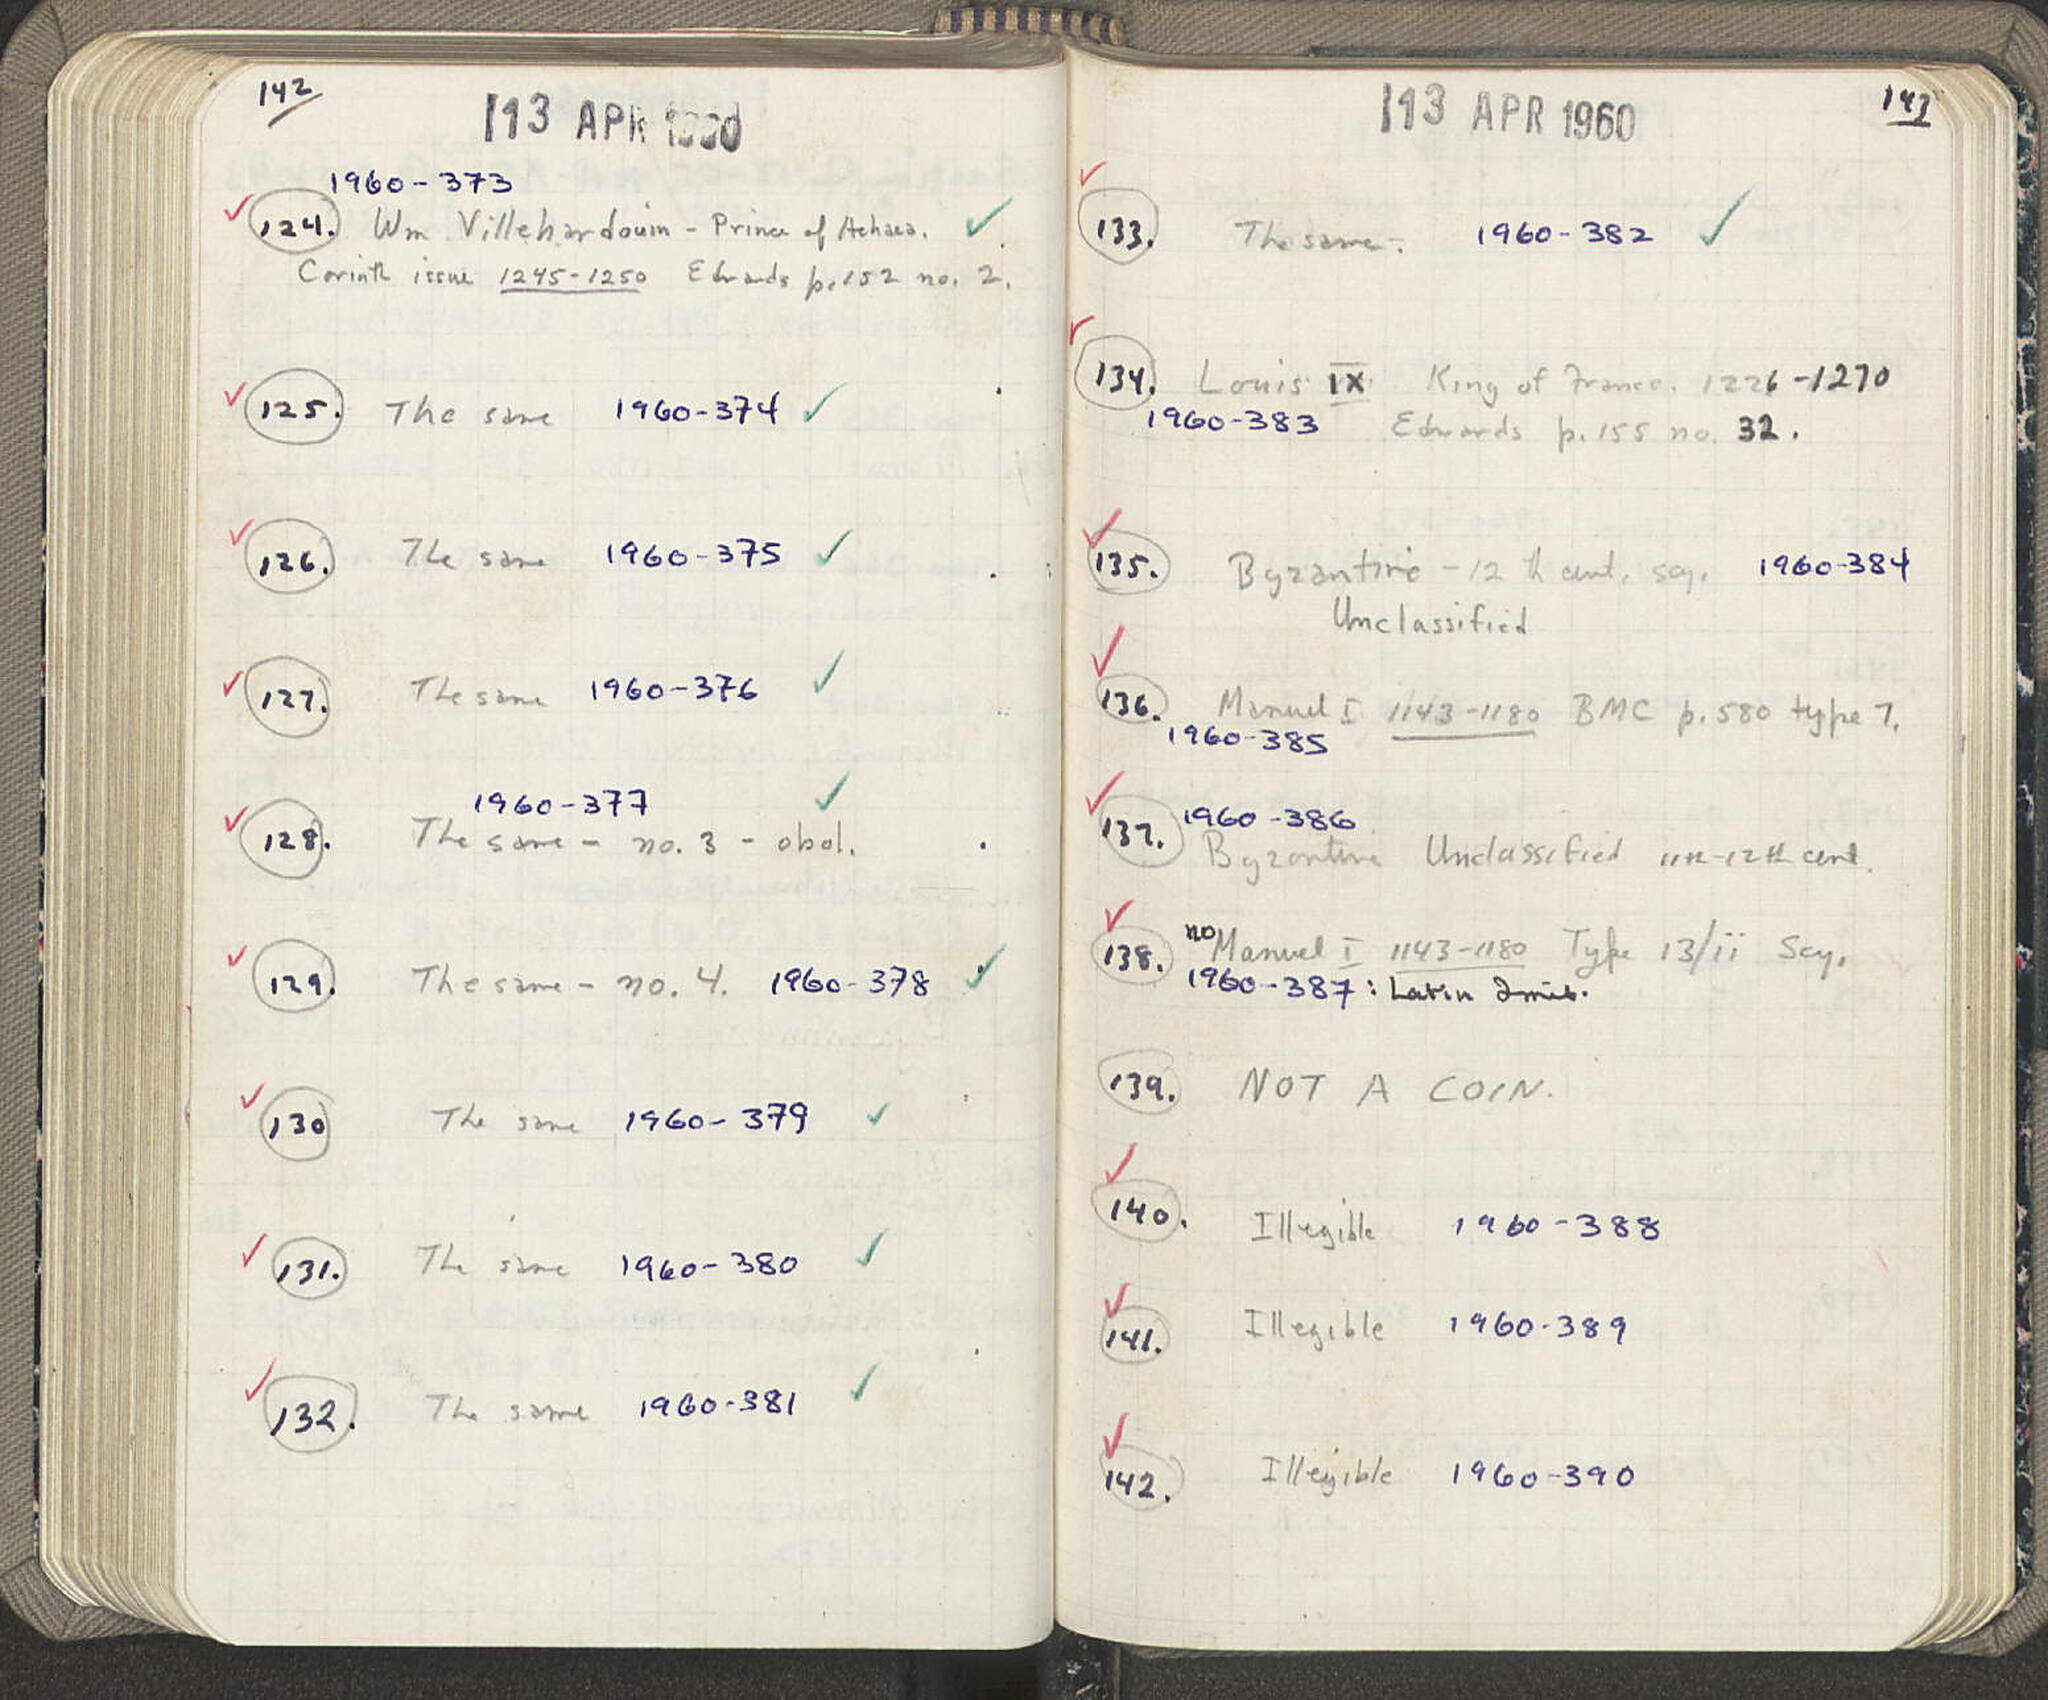 142
13 APR 1960
1960-373
124. Wm Villehardouin - Prince of Achaea.
Corinth issue 1245-1250 Edwards p.152 no. 2.
125. The same 1960-374
126. The same 1960-375
127. The same 1960-376
1960-377
128. The same - no. 3 - obol.
129. The same - no. 4. 1960-378
130 The same 1960-379
131. The same 1960-380
132. The same 1960-381
143
13 APR 1960
133. The same -. 1960-382
134. Louis IX King of France. 1226-1270
1960-383 Edwards p.155 no. 32.
135. Byzantine - 12th cent. scy. 1960-384
Unclassified
136. Manuel I 1143-1180 BMC p.580 type 7.
1960-385
1960-386
137. Byzantine Unclassified 11th-12th cent.
138. no Manuel I 1143-1180 Type 13/ii Scy.
1960-387: Latin Imit.
139. NOT A COIN.
140. Illegible 1960-388
141. Illegible 1960-389
142. Illegible 1960-390